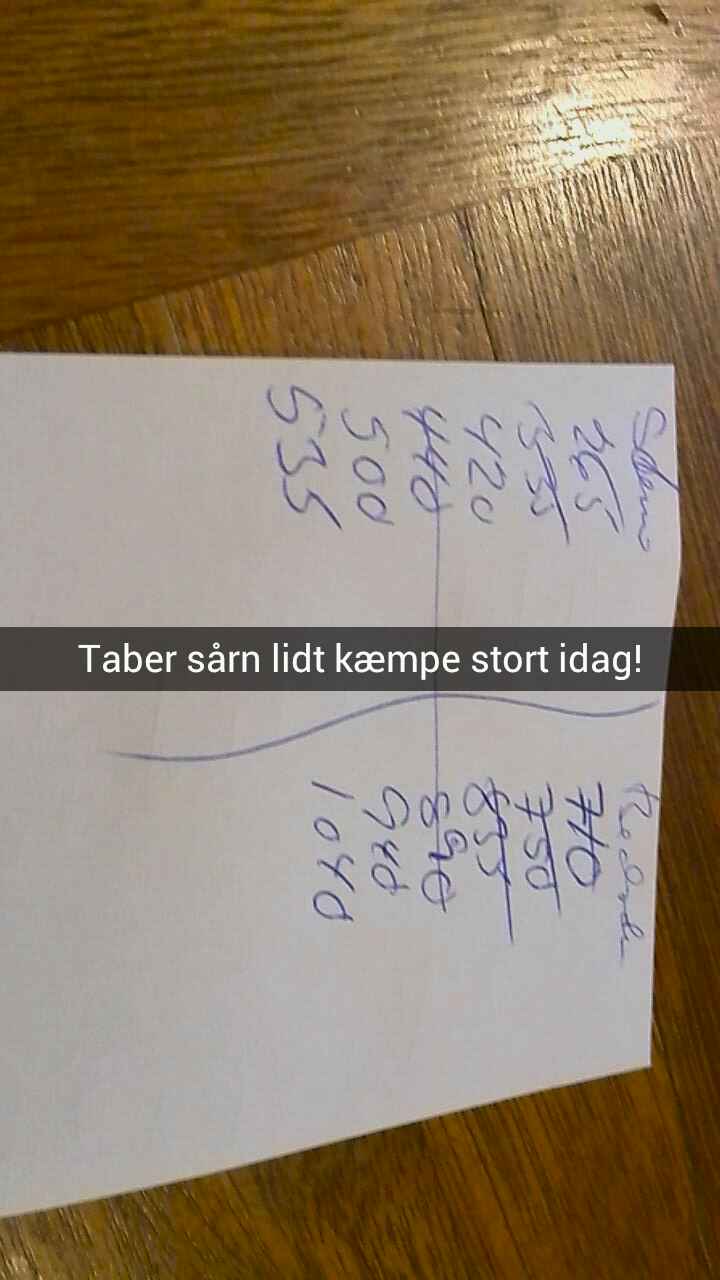 265
335
420
440
500
535
Taber sårn lidt kæmpe stort idag!
710
750
855
890
940
1040